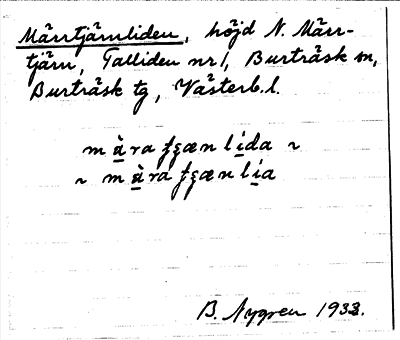 Märrtjärnliden, höjd N. Märr-
tjärn, Talliden nr 1, Burträsk sn,
Burträsk tg, Västerb. l.
mæ̀ra lída ~
~ mæ̀ra lía
B. Nygren 1933.